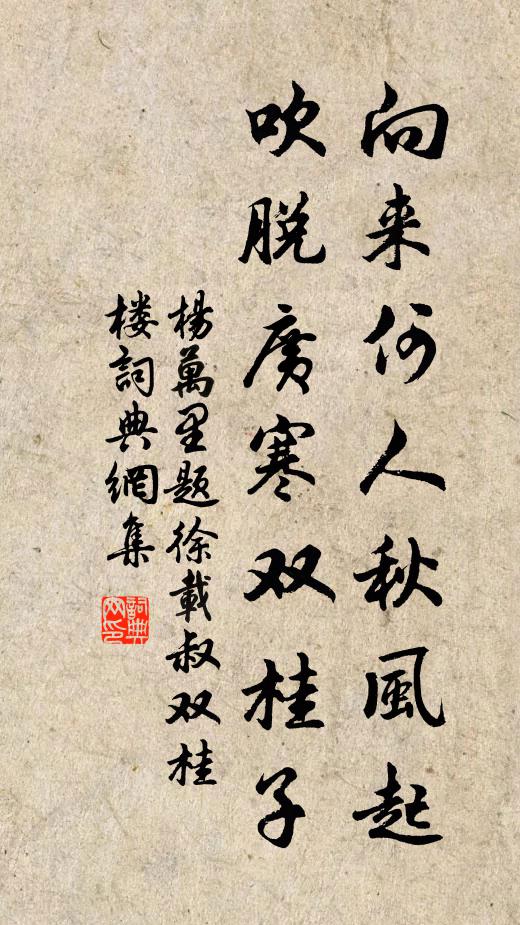 向来何人秋風起
吹脱廣寒双桂子
楊萬里题徐載叔双桂
楼詞典網集
詞典
网印